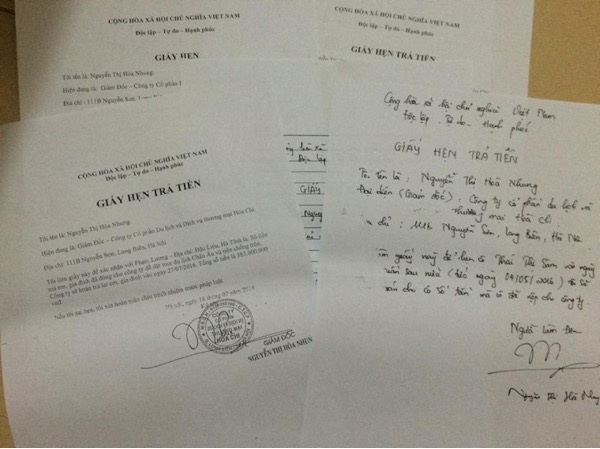 CỘNG HÒA XÃ HỘI CHỦ NGHĨA VIỆT NAM
Độc lập – Tự do – Hạnh phúc
GIẤY HẸN
Tôi tên là: Nguyễn Thị Hòa Nhung
Hiện đang là: Giám Đốc – Công ty Cổ phần
Địa chỉ: 111B Nguyễn Sơn,
CỘNG HÒA XÃ HỘI CHỦ NGHĨA VIỆT NAM
Độc lập – Tự do – Hạnh phúc
GIẤY HẸN TRẢ TIỀN
CỘNG HÒA XÃ HỘI CHỦ NGHĨA VIỆT NAM
Độc lập – Tự do – Hạnh phúc
GIẤY HẸN TRẢ TIỀN
Tôi tên là: Nguyễn Thị Hòa Nhung.
Hiện đang là: Giám Đốc – Công ty Cổ phần Du lịch và Dịch vụ thương mại Hoa Chi
Địa chỉ: 111B Nguyễn Sơn, Long Biên, Hà Nội
Tôi làm giấy này để xác nhận với Phạm Lương – Địa chỉ: Đậu Liêu, Hà Tĩnh là: Số tiền
mà em, gia đình đã đóng cho công ty để đặt tour du lịch Châu Âu và tiền chống trốn,
Công ty sẽ hoàn trả lại em, gia đình vào ngày 27/07/2018. Tổng số tiền là
vnđ.
Nếu tôi sai hẹn, tôi xin hoàn toàn chịu trách nhiệm trước pháp luật.
Hà nội, ngày
HOA CHI
GIÁM ĐỐC
NGUYỄN THỊ HÒA NHUN
GIẤY
Cộng hòa xã hội chủ nghĩa Việt Nam
Độc lập - Tự do - Hạnh phúc
GIẤY HẸN TRẢ TIỀN
Tôi tên là: Nguyễn Thị Hòa Nhung
Đại diện (Giám đốc): Công ty cổ phần du lịch và
thương mại Hoa Chi
chỉ: 111B Nguyễn Sơn, Long Biên, Hà Nội
giấy này để hẹn cô Thái Thị Sam vào ngày
cho cô số tiền mà cô đã nộp cho công ty
Người làm đơn
Nguyễn Thị Hòa Nhung